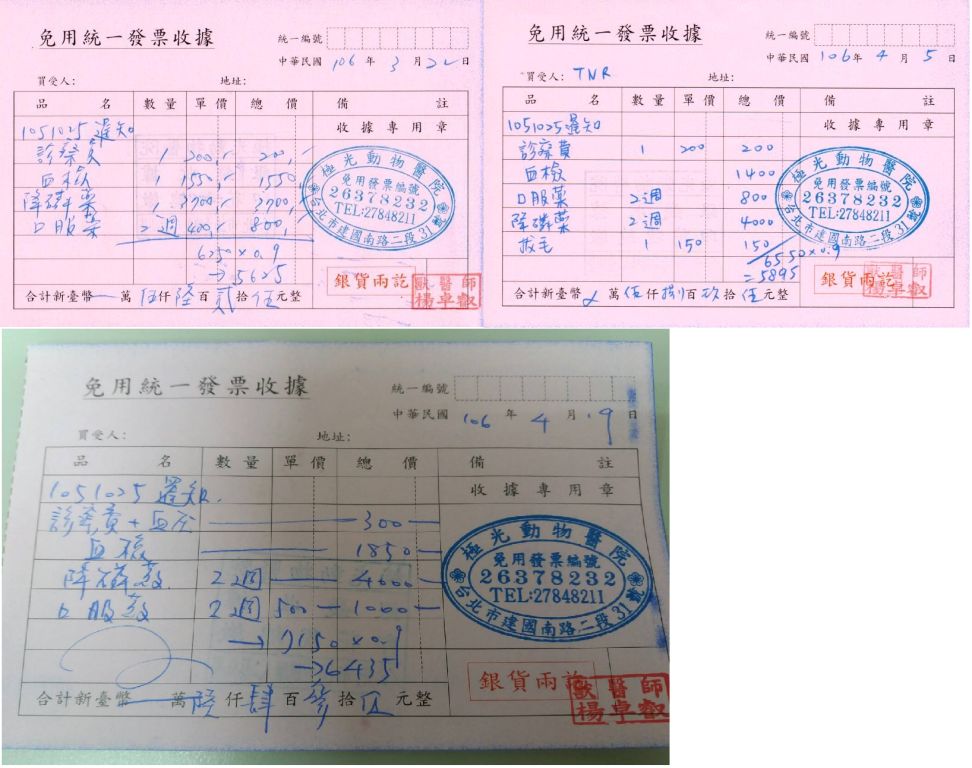 免用統一發票收據
統一編號
中華民國 106 年 3 月 22 日
買受人: 地址:
品 名 數量 單價 總 價 備 註
1051025 遲知 收據專用章
診察費 1 200,- 200,-
血檢 1 1550,- 1550
降磷藥 1 3700,- 3700,
口服藥 2週 400,- 800,
6250×0.9
→ 5625
極光動物醫院
免用發票編號
26378232
TEL:27848211
台北市建國南路二段31號
銀貨兩訖
獸醫師
楊卓叡
合計新臺幣 萬 伍仟 陸百 貳拾 伍元整
免用統一發票收據
統一編號
中華民國 106年 4 月 5 日
買受人: TNR 地址:
品 名 數量 單價 總 價 備 註
1051025 遲知 收據專用章
診察費 1 200 200
血檢 1400
口服藥 2週 800
降磷藥 2週 4000
拔毛 1 150 150
6550×0.9
=5895
極光動物醫院
免用發票編號
26378232
TEL:27848211
台北市建國南路二段31號
銀貨兩訖
獸醫師
楊卓叡
合計新臺幣 萬 伍仟 捌百 玖拾 伍元整
免用統一發票收據
統一編號
中華民國 106 年 4 月 19 日
買受人: 地址:
品 名 數量 單價 總 價 備 註
1051025 遲知 收據專用章
診察費+血压 300
血檢 1850
降磷藥 2週 4000
口服藥 2週 500 1000
→ 7150×0.9
→ 6435
極光動物醫院
免用發票編號
26378232
TEL:27848211
台北市建國南路二段31號
銀貨兩訖
獸醫師
楊卓叡
合計新臺幣 萬 陸仟 肆百 參拾 伍元整